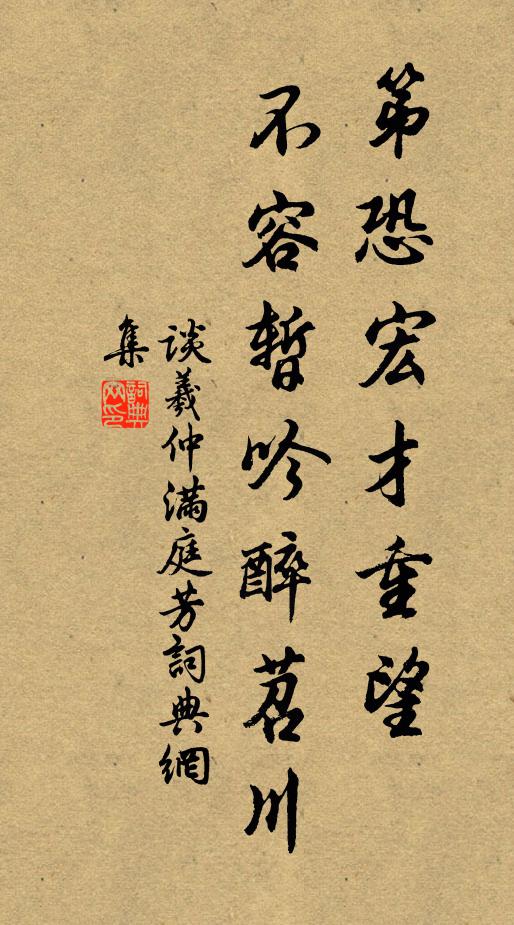 第恐宏才重望
不容暫吟醉苕川
談羲仲滿庭芳詞典網
集
詞典網印